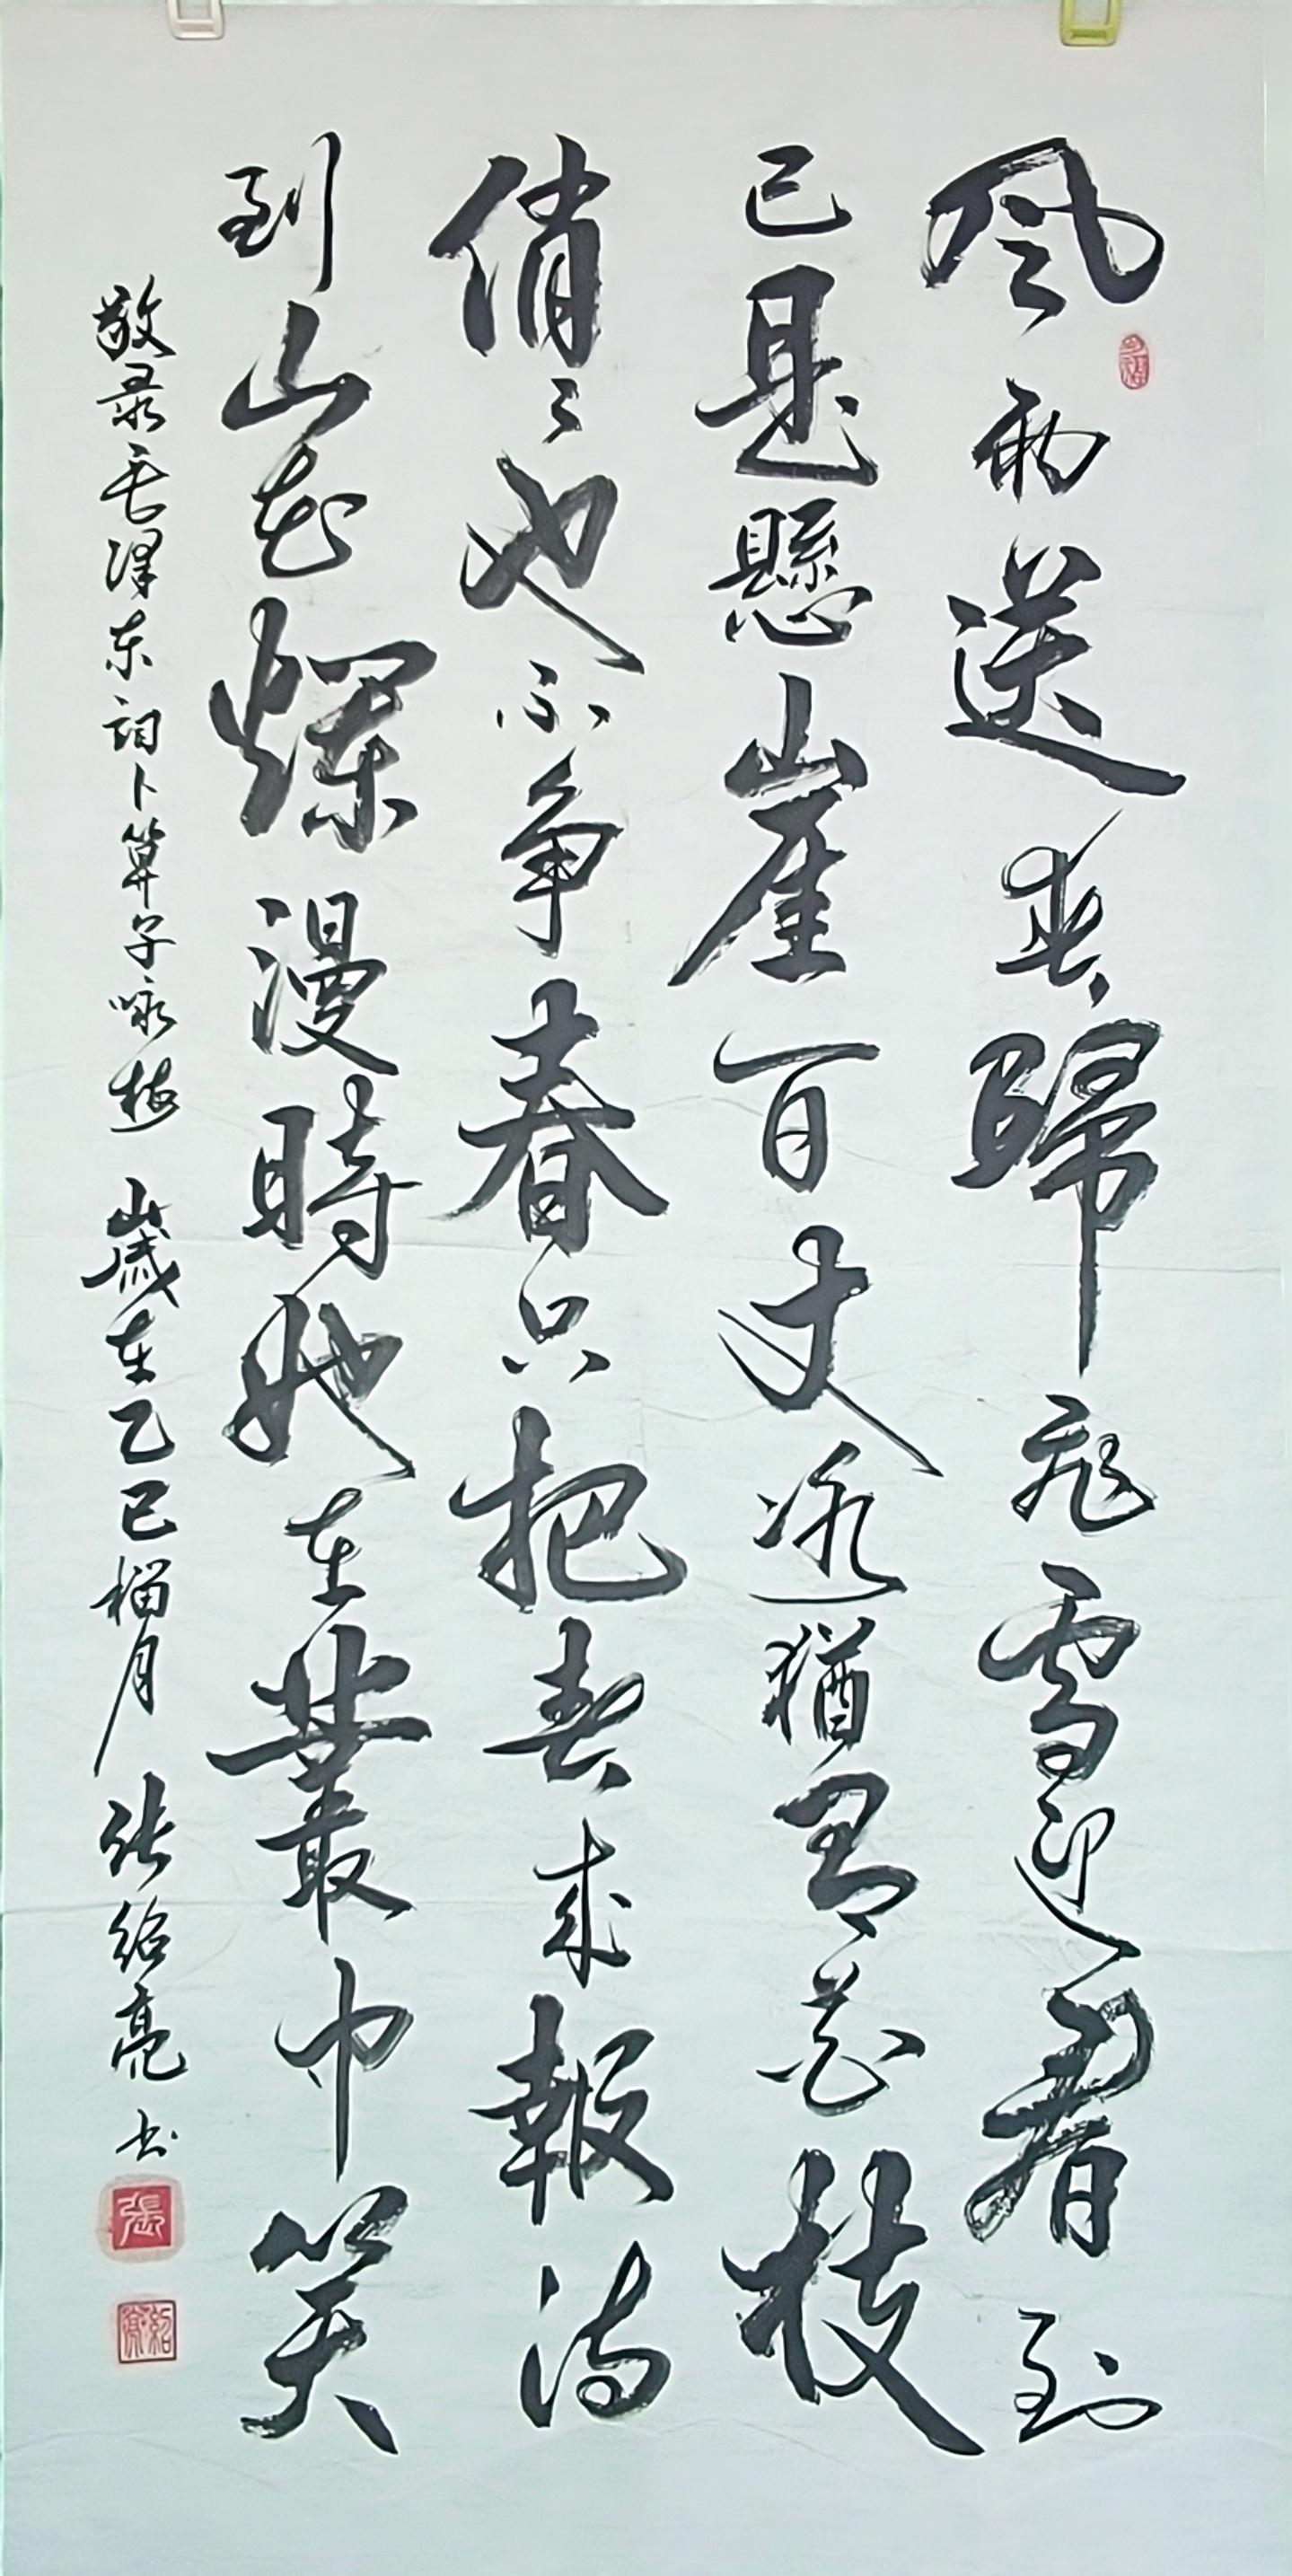 風雨送春歸飛雪迎春到
已是懸崖百丈冰猶有花枝
俏俏也不争春只把春來報待
到山花爛漫時她在叢中笑
敬录毛泽东词卜算子咏梅 歲在乙巳榴月 张绍亮书
張
紹亮